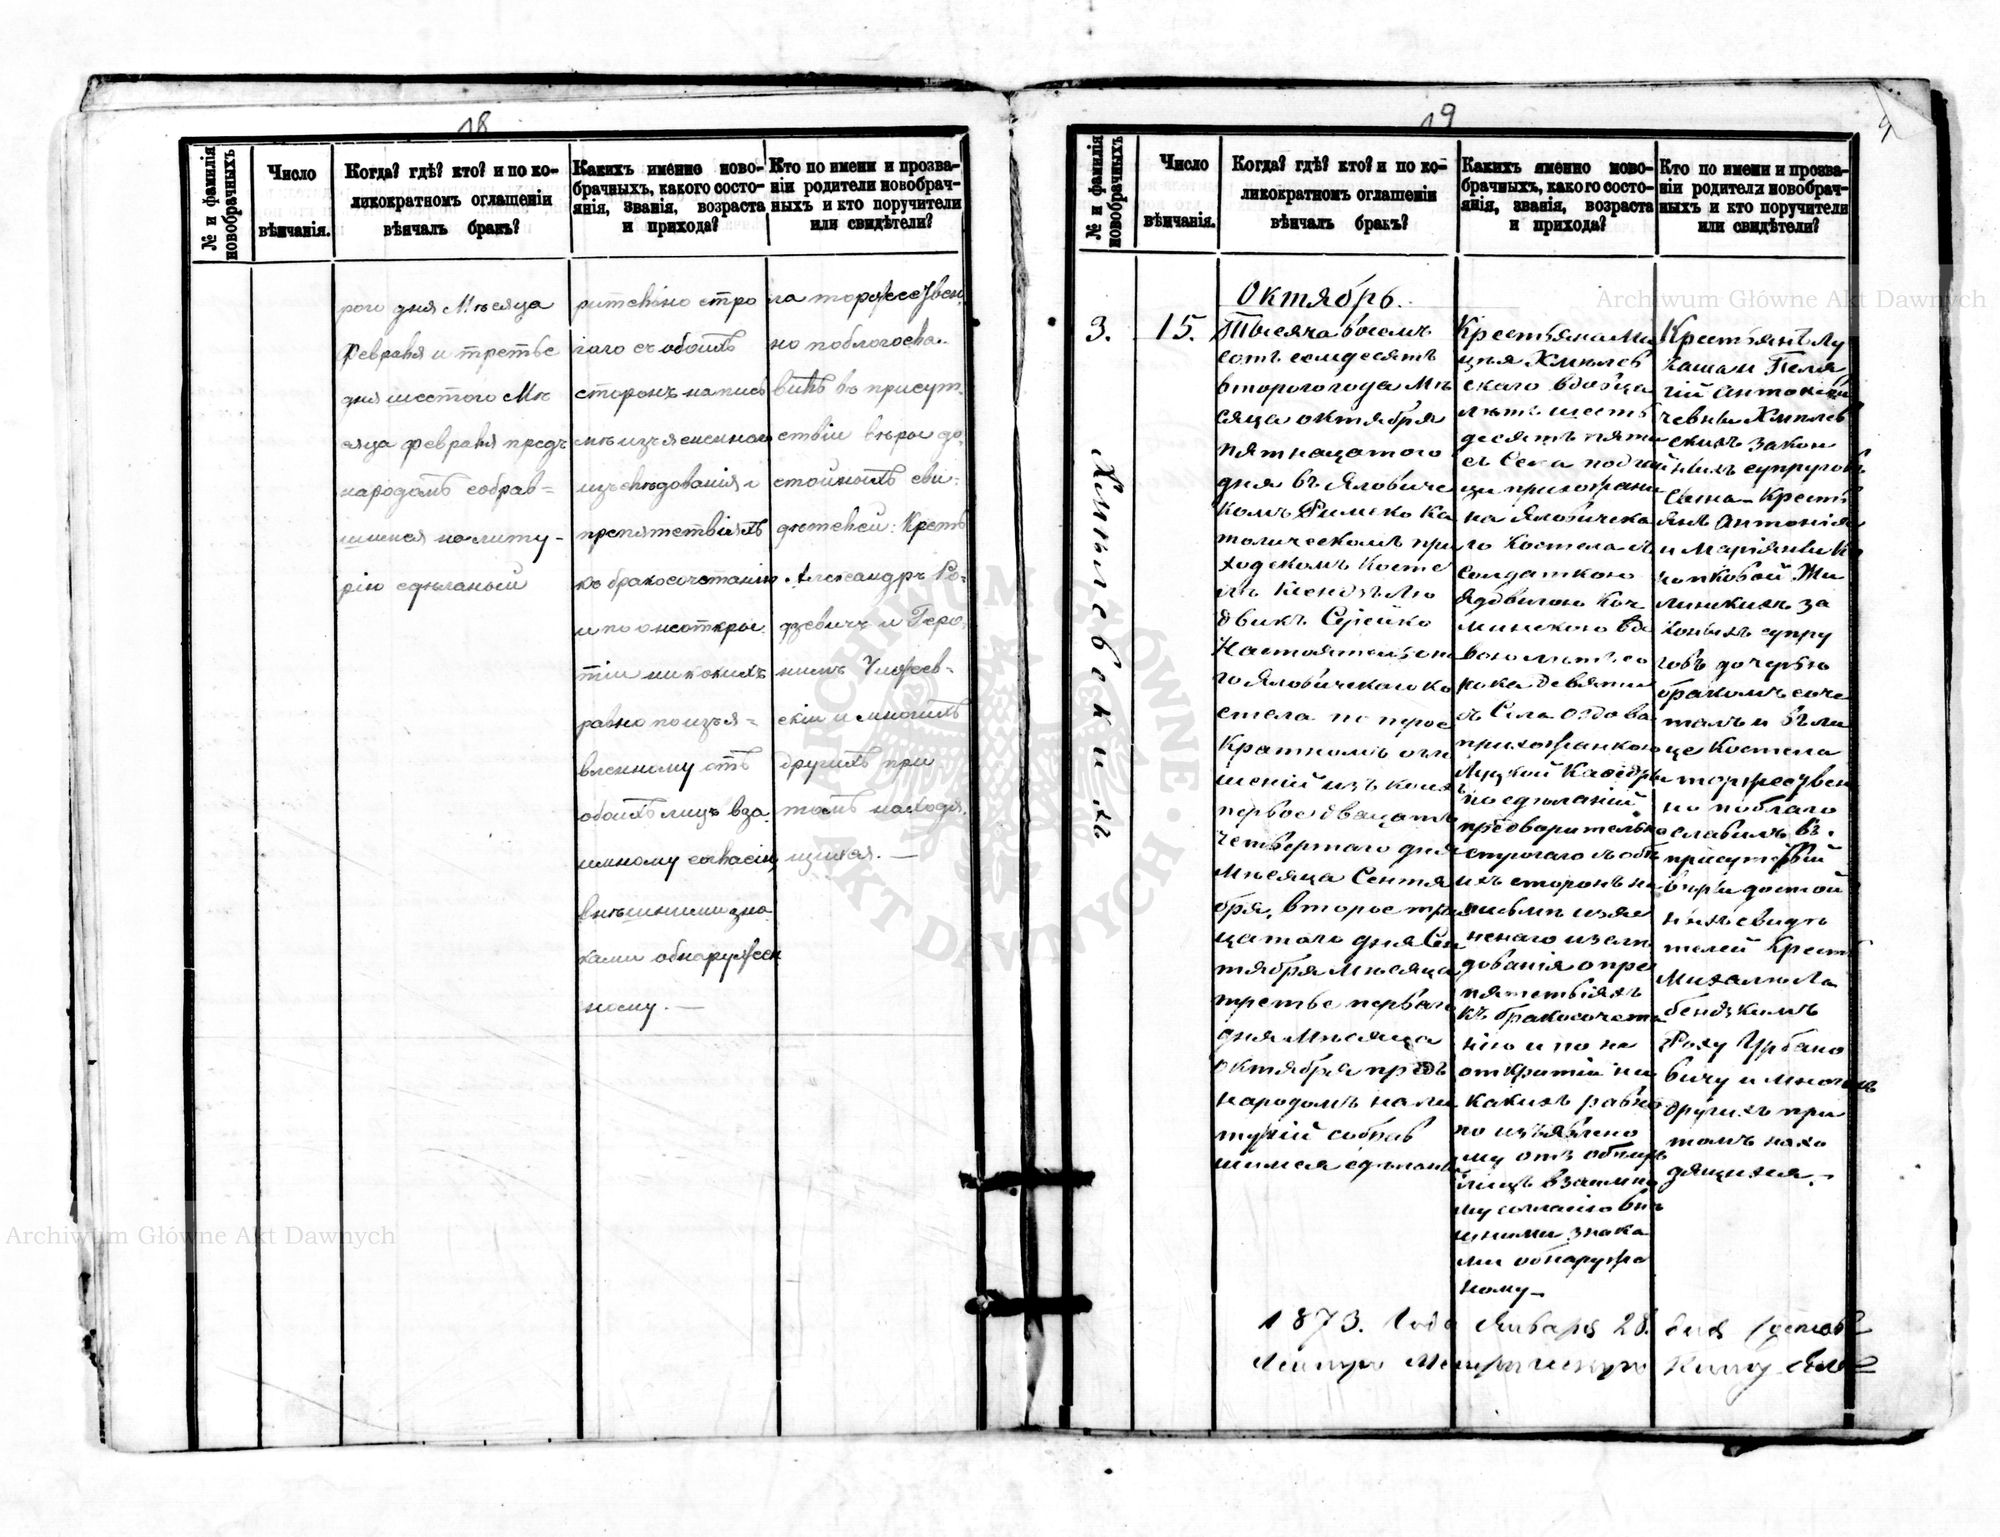 18
№ и фамилія новобрачныхъ
Число вѣнчанія.
Когда? гдѣ? кто? и по ко-
ликократномъ оглашеніи
вѣнчалъ бракъ?
Каких именно ново-
брачныхъ, какого состо-
янія, званія, возраста
и прихода?
Кто по имени и прозва-
ніи родители новобрач-
ныхъ и кто поручители
или свидѣтели?
рого дня Мѣсяца
Февраля и третье
дня шестого Мѣ
сяца февраля предъ
народомъ собрав=
шимся на литур-
рію сдѣланый
рительно стро
гаго съ обоихъ
сторонъ на пись
мѣ изъясненнаго
изслѣдованія о
препятствіяхъ
къ бракосочетанію
и по неоткры
тіи никакихъ
равно по изъя=
вленному отъ
обоихъ лицъ вза
имному согласію,
внѣшними зна
ками обнаружен
ному. —
на торжествен
но поблогосла
вилъ въ присут
ствіи вѣры до
стойныхъ сви-
дѣтелей: Крест
Александръ Ро-
дзевичъ и Геро-
нимъ
скій и многихъ
другихъ при
томъ находя
щихся. —
19
№ и фамилія новобрачныхъ
Число вѣнчанія.
Когда? гдѣ? кто? и по ко-
ликократномъ оглашеніи
вѣнчалъ бракъ?
Каких именно ново-
брачныхъ, какого состо-
янія, званія, возраста
и прихода?
Кто по имени и прозва-
ніи родители новобрач-
ныхъ и кто поручители
или свидѣтели?
3.
Хмѣлевскихъ
15.
Октябрь.
Тысяча восемъ
сотъ семдесятъ
второго года Мѣ
сяца октября
пятнацатого
дня въ Яловиче
комъ Римско Ка
толическомъ при
ходскомъ Косте
лѣ Ксендзъ Лю
двикъ Серейко
Настоятель она
го Яловичкаго ко
стела по троє
Кратномъ огла
шеній изъ коихъ
первое двацать
четвертаго дня
Мѣсяца Сентя
бря, второе три
цатого дня Сен
тября Мѣсяца
третье первого
дня Мѣсяца
Октября предъ
народомъ на ли
тургій собрав
шимся сдѣланы
Крестьянина Ми
Хмѣлев
скаго вдовца
лѣтъ шесть
десятъ пять
съ Села Подгай
цы прихожани
на Яловичска
го Костела съ
солдаткою
Ядвигою Коч
минскою вдо
вою лѣтъ со
рока девяти
съ Села
прихожанкою
Луцкой Кафедры
по сдѣланій
предварительно
строгаго съ обѣ
ихъ сторонъ на
письмѣ изъяс
ненаго изслѣ
дованія о пре
пятствіяхъ
къ бракосочета
нію и по не
открытій ни
какихъ равно
по изъявлено
му отъ обоихъ
лицъ взаимно
му согласію внѣ
шними знака
ми обнаруже
ному —
Крестьянъ Лу
каша и Пеля
гій Антоніе
вны Хмѣлев
скихъ закон
ныхъ супруговъ
сына — Кресть
янъ Антонія
и Маріянны
за
конныхъ супру
говъ дочерью
бракомъ соче
талъ и въ ли
це Костела
торжествен
но поблаго
славилъ въ
присутствій
вѣры достой
ныхъ свидѣ
телей Крест
Михаломъ
Роху Урбано
вичу и многихъ
другихъ при
томъ нахо
дящихся. —
1873. Года Января 28. дня
Метрическую Книгу
Archiwum Główne Akt Dawnych
Archiwum Główne Akt Dawnych
ARCHIWUM GŁÓWNE AKT DAWNYCH